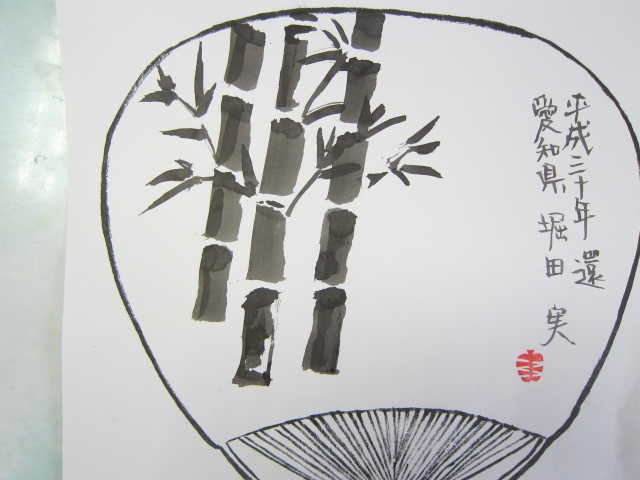 平成三十年 還
愛知県 堀田 実